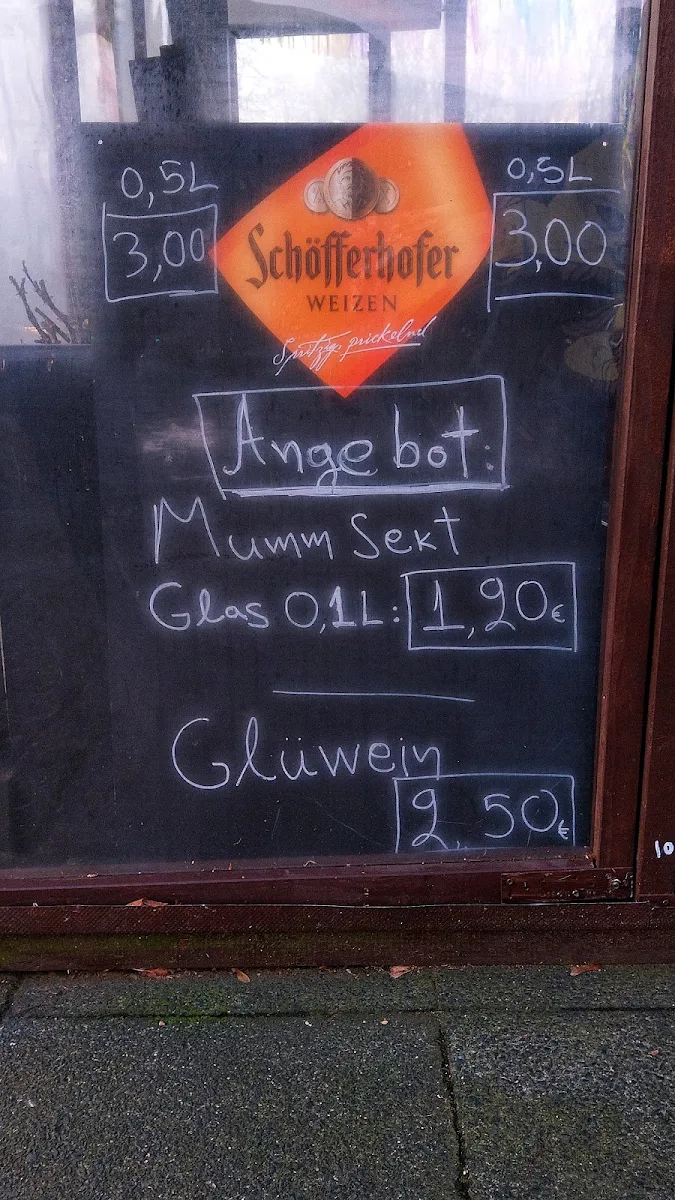 0,5L
3,00
0,5L
3,00
Schöfferhofer
WEIZEN
Spritzig, prickelnd
Angebot:
Mumm Sekt
Glas 0,1L: 1,90€
Glüwein
2,50€
10